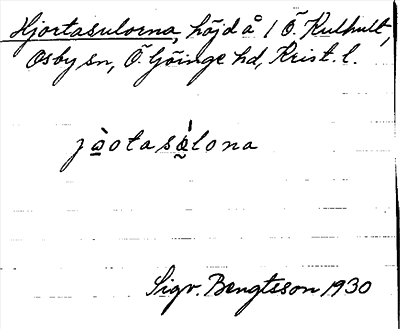 Hjortasulorna, höjd å 1 Ö. Kulhult,
Osby sn, Ö. Göinge hd, Krist. l.
jòotasǜlona
Sigv. Bengtsson 1930